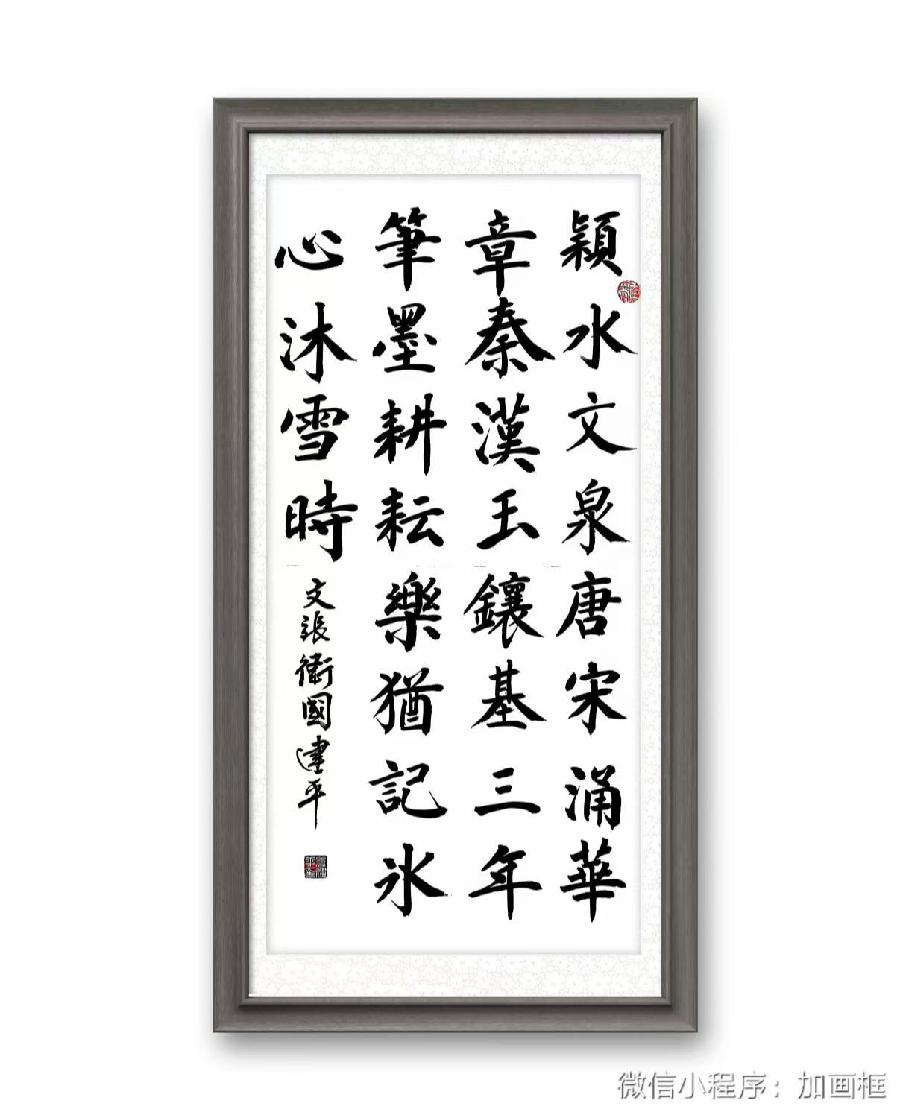 穎水文泉唐宋涌華
章秦漢玉鑲基三年
筆墨耕耘樂猶記冰
心沐雪時
文張衛國建平
微信小程序：加画框